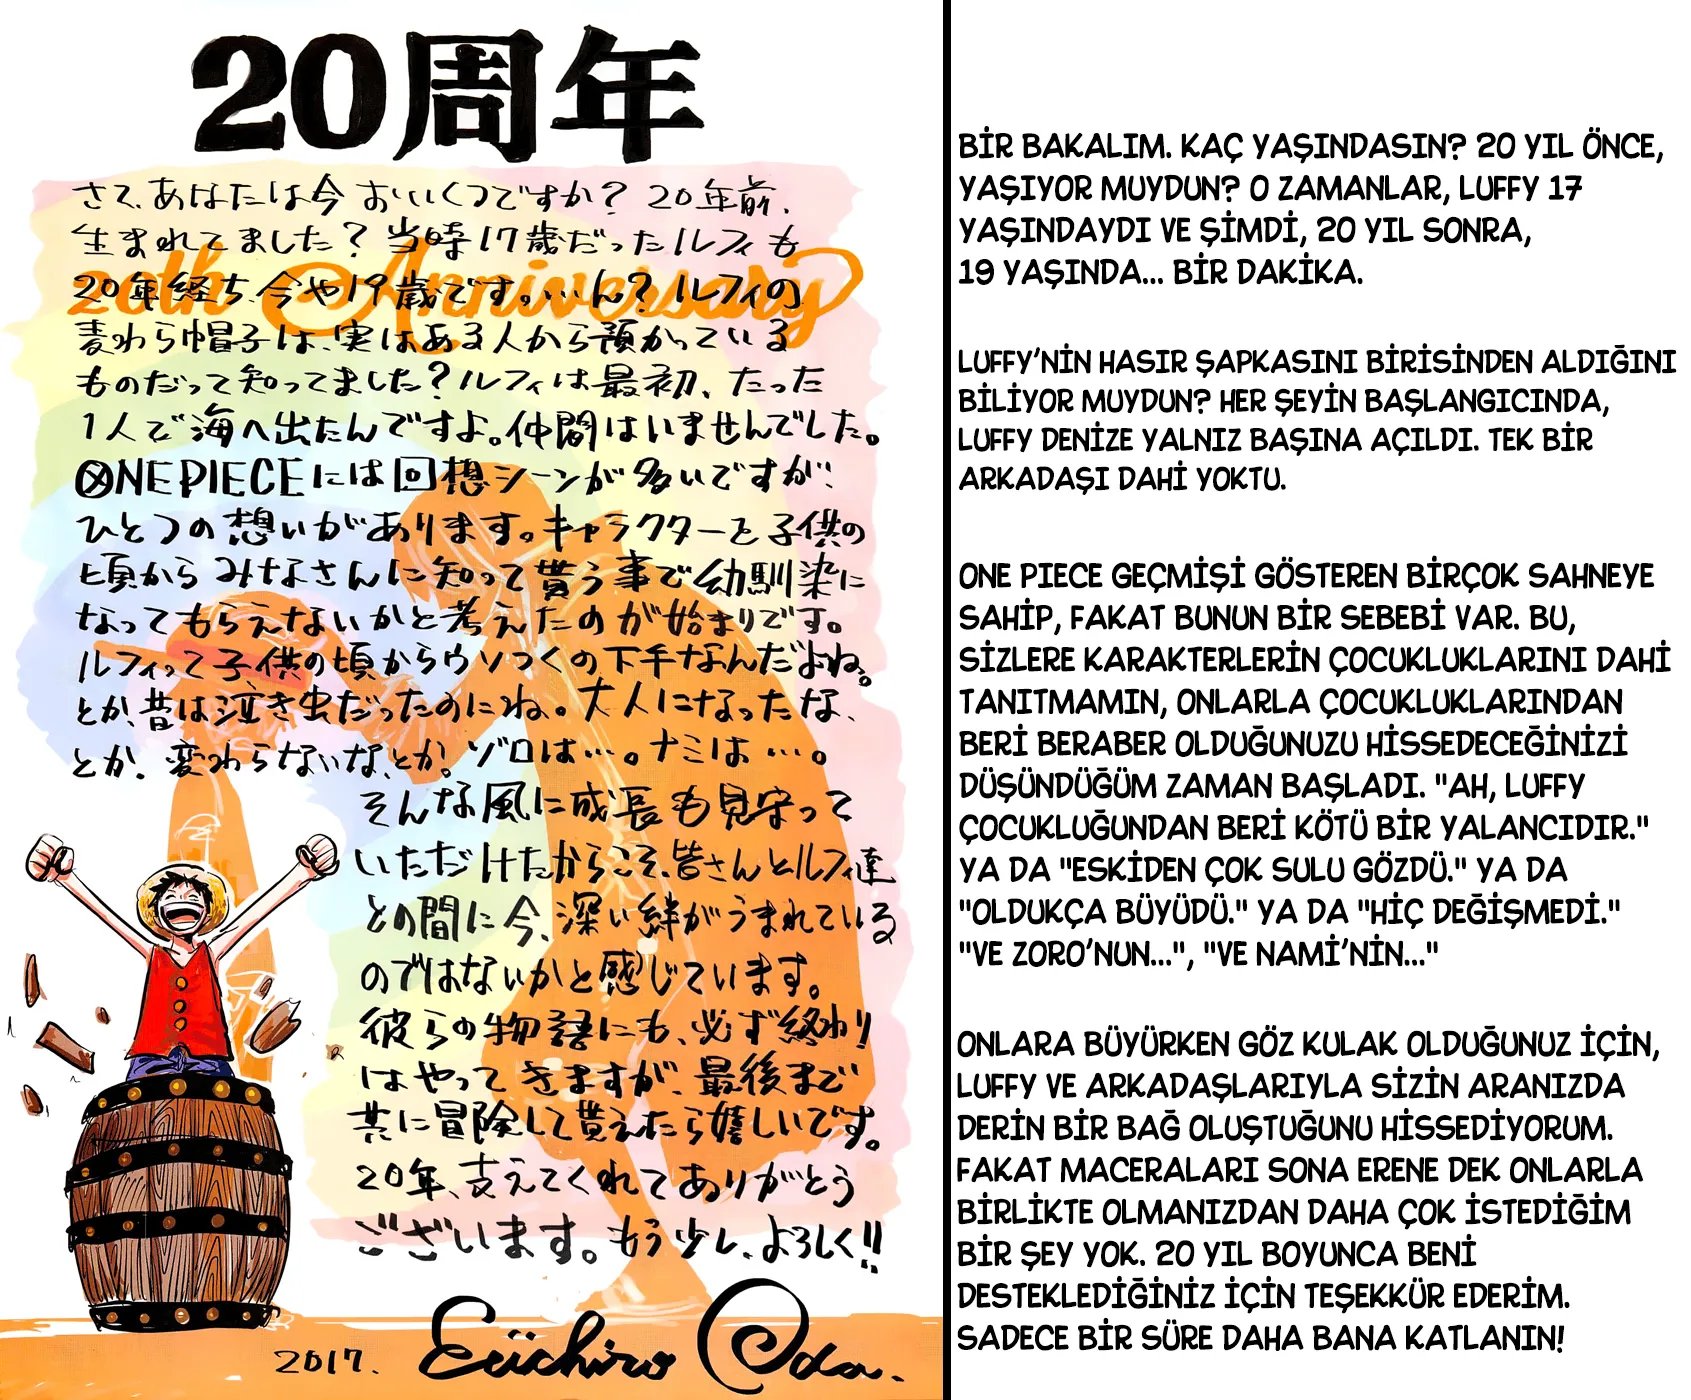 20周年
20th Anniversary
さて、あなたは今おいくつですか? 20年前、
生まれてました?当時17歳だったルフィも
20年経ち、今や19歳です。…ん?ルフィの
麦わら帽子は、実はある人から預かっている
ものだって知ってました?ルフィは最初、たった
1人で海へ出たんですよ。仲間はいませんでした。
ONE PIECEには回想シーンが多いですが、
ひとつの想いがあります。キャラクターを子供の
頃からみなさんに知って貰う事で幼馴染に
なってもらえないかと考えたのが始まりです。
ルフィって子供の頃からウソつくの下手なんだよね。
とか、昔は泣き虫だったのにね。大人になったな、
とか、変わらないな、とか。ゾロは…。ナミは…。
そんな風に成長も見守って
いただけたからこそ、皆さんとルフィ達
との間に今、深い絆がうまれている
のではないかと感じています。
彼らの物語にも、必ず終わり
はやってきますが、最後まで
共に冒険して貰えたら嬉しいです。
20年、支えてくれてありがとう
ございます。もう少し、よろしく!!
2017. Eiichiro Oda.
BİR BAKALIM. KAÇ YAŞINDASIN? 20 YIL ÖNCE,
YAŞIYOR MUYDUN? O ZAMANLAR, LUFFY 17
YAŞINDAYDI VE ŞİMDİ, 20 YIL SONRA,
19 YAŞINDA... BİR DAKİKA.
LUFFY'NİN HASIR ŞAPKASINI BİRİSİNDEN ALDIĞINI
BİLİYOR MUYDUN? HER ŞEYİN BAŞLANGICINDA,
LUFFY DENİZE YALNIZ BAŞINA AÇILDI. TEK BİR
ARKADAŞI DAHİ YOKTU.
ONE PIECE GEÇMİŞİ GÖSTEREN BİRÇOK SAHNEYE
SAHİP, FAKAT BUNUN BİR SEBEBİ VAR. BU,
SİZLERE KARAKTERLERİN ÇOCUKLUKLARINI DAHİ
TANITMAMIN, ONLARLA ÇOCUKLUKLARINDAN
BERİ BERABER OLDUĞUNUZU HİSSEDECEĞİNİZİ
DÜŞÜNDÜĞÜM ZAMAN BAŞLADI. "AH, LUFFY
ÇOCUKLUĞUNDAN BERİ KÖTÜ BİR YALANCIDIR."
YA DA "ESKİDEN ÇOK SULU GÖZDÜ." YA DA
"OLDUKÇA BÜYÜDÜ." YA DA "HİÇ DEĞİŞMEDİ."
"VE ZORO'NUN...", "VE NAMİ'NİN..."
ONLARA BÜYÜRKEN GÖZ KULAK OLDUĞUNUZ İÇİN,
LUFFY VE ARKADAŞLARIYLA SİZİN ARANIZDA
DERİN BİR BAĞ OLUŞTUĞUNU HİSSEDİYORUM.
FAKAT MACERALARI SONA ERENE DEK ONLARLA
BİRLİKTE OLMANIZDAN DAHA ÇOK İSTEDİĞİM
BİR ŞEY YOK. 20 YIL BOYUNCA BENİ
DESTEKLEDİĞİNİZ İÇİN TEŞEKKÜR EDERİM.
SADECE BİR SÜRE DAHA BANA KATLANIN!